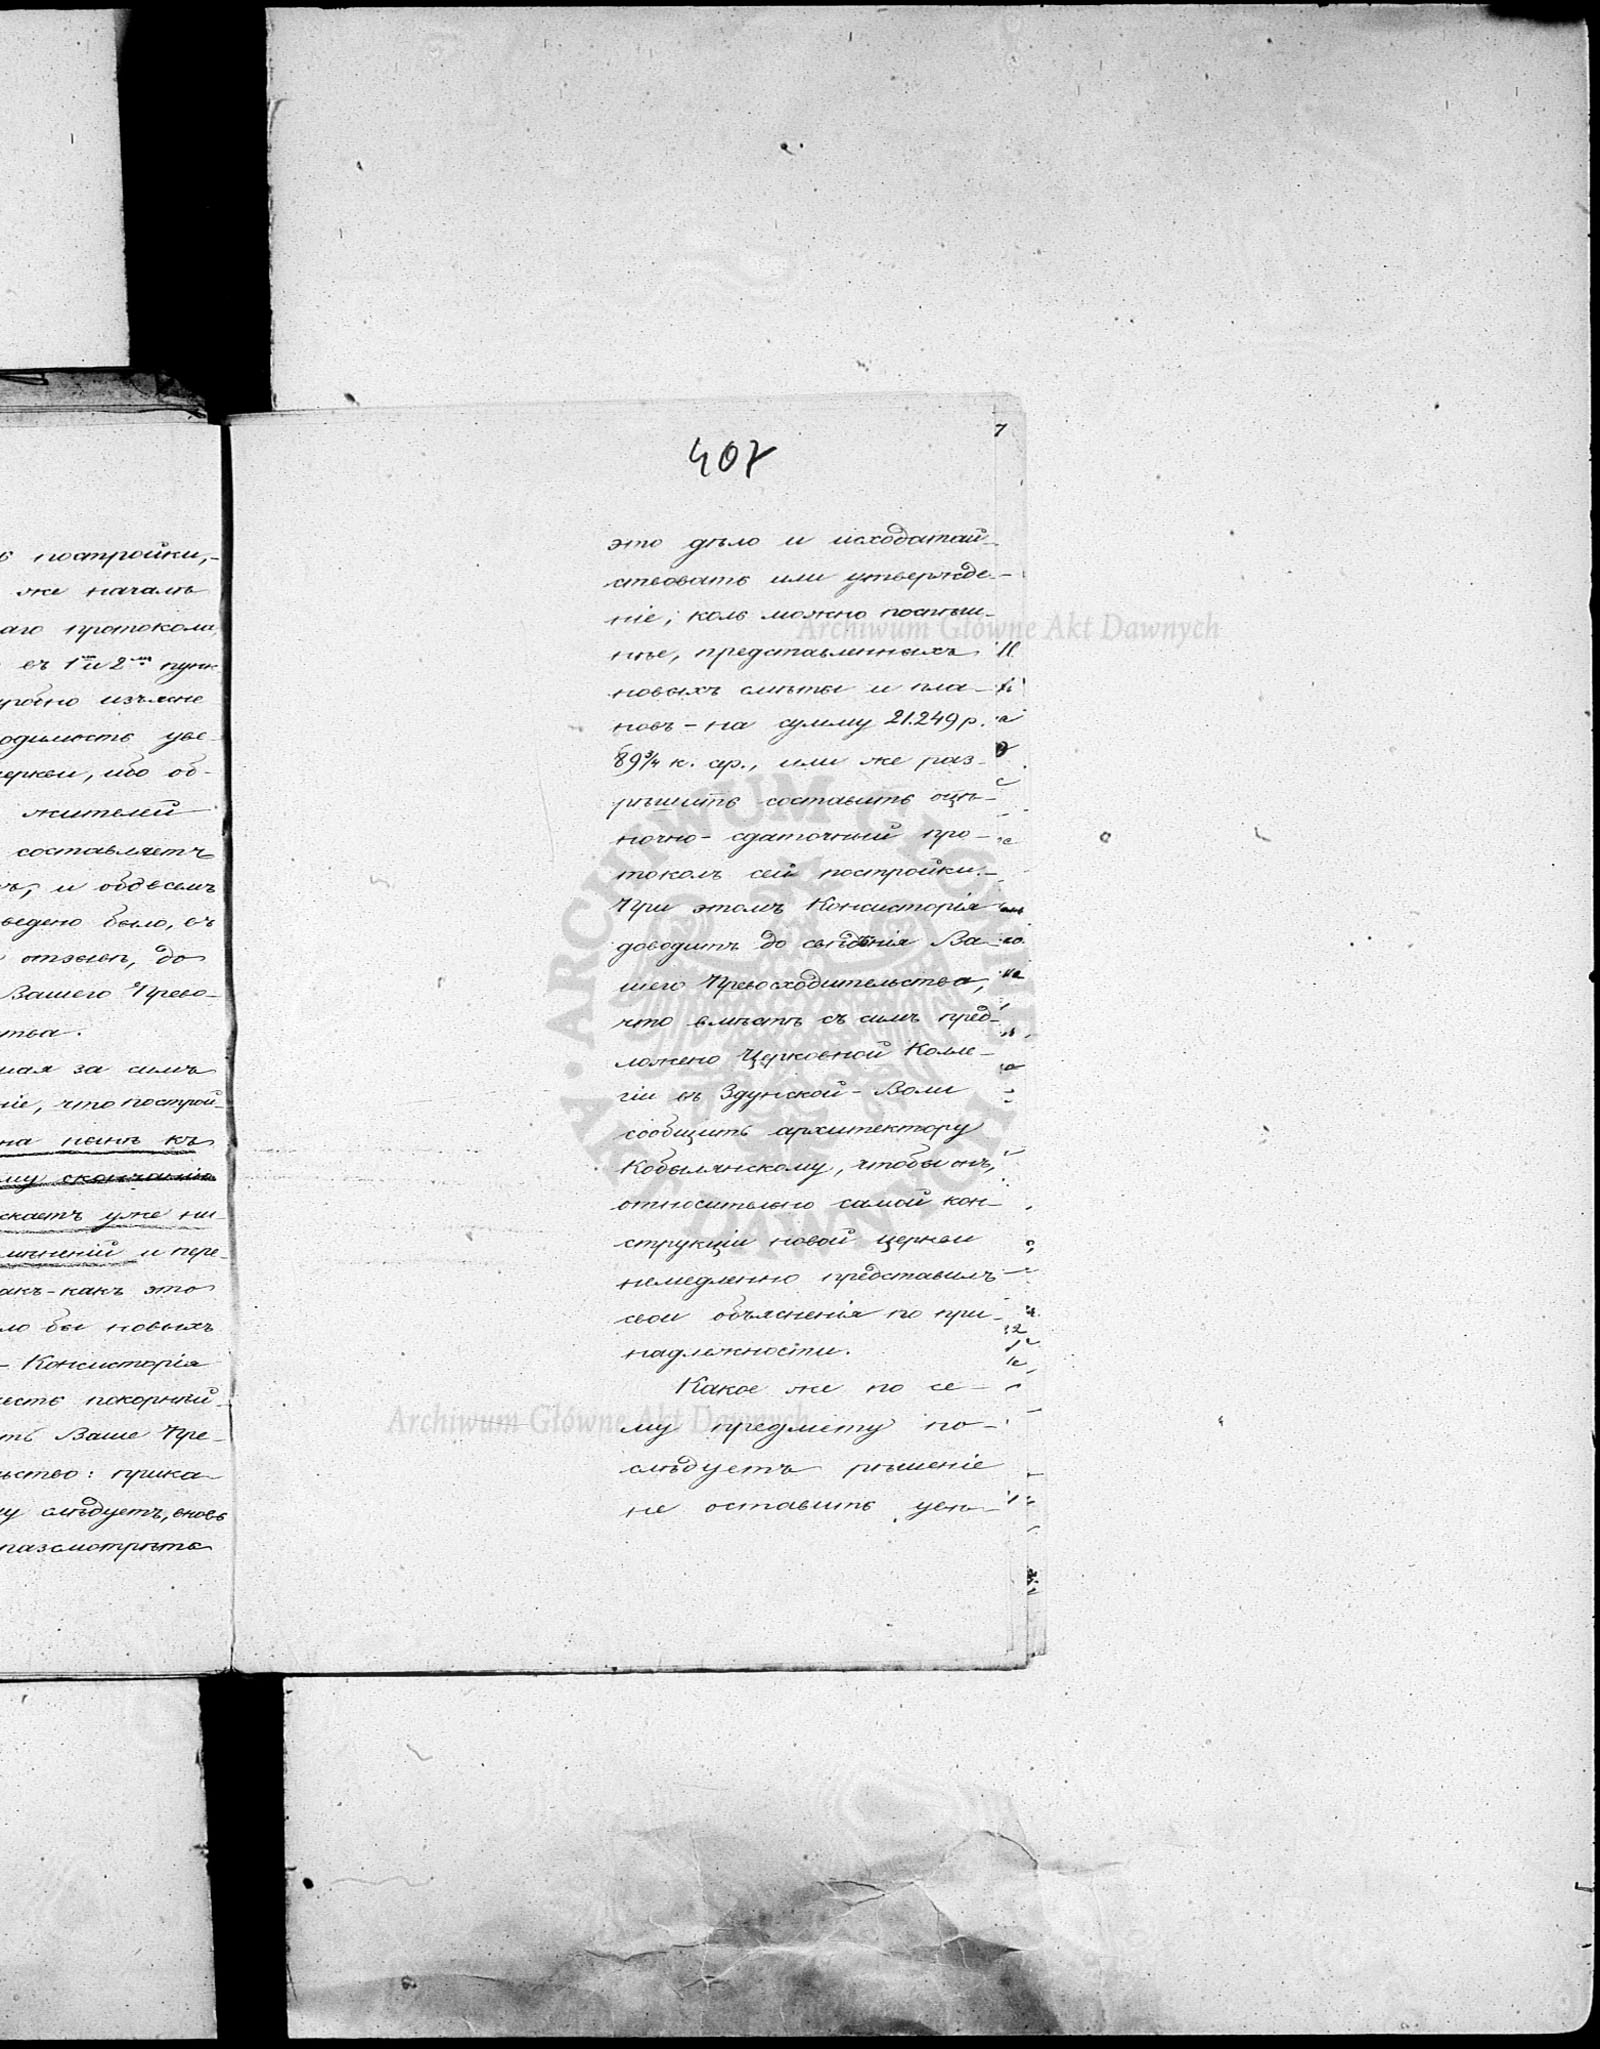 ъ постройки,-
же началъ
аго протокола,
въ 1мъ и 2мъ пунк
робно изъясне
одимость уве-
еркви, ибо об-
жителей
составляетъ
и обо всемъ
ведено было, въ
отзывъ, до
Вашего Прево-
тва.
мая за симъ
ніе, что построй-
на нынѣ къ
му скончанію
скаетъ уже ни-
мѣненій и пере-
акъ-какъ это
ло бы новыхъ
- Консисторія
честь покорнѣй-
ть Ваше Пре-
ьство: прика-
у слѣдуетъ, вновь
разсмотрѣть
407
7
это дѣло и исходатай-
ствовать или утвержде-
ніе, коль можно поспѣш-
нѣе, представленныхъ
новыхъ смѣты и пла-
новъ - на сумму 21.249 р.
89 3/4 к. ср., или же раз-
рѣшить составить оцѣ-
ночно-сдаточный про-
токолъ сей постройки.-
При этомъ Консисторія
доводитъ до свѣдѣнія Ва-
шего Превосходительства,
что вмѣстѣ съ симъ пред-
ложено Церковной Колле-
гіи въ Здунской-Воли
сообщить архитектору
Кобылянскому, чтобы онъ,
относительно самой кон-
струкціи новой церкви
немедленно представилъ
свои объясненія по при-
надлежности.
Какое же по се-
му предмету по-
слѣдуетъ рѣшеніе
не оставить увѣ-
Archiwum Główne Akt Dawnych
ARCHIWUM GŁÓWNE AKT DAWNYCH
Archiwum Główne Akt Dawnych